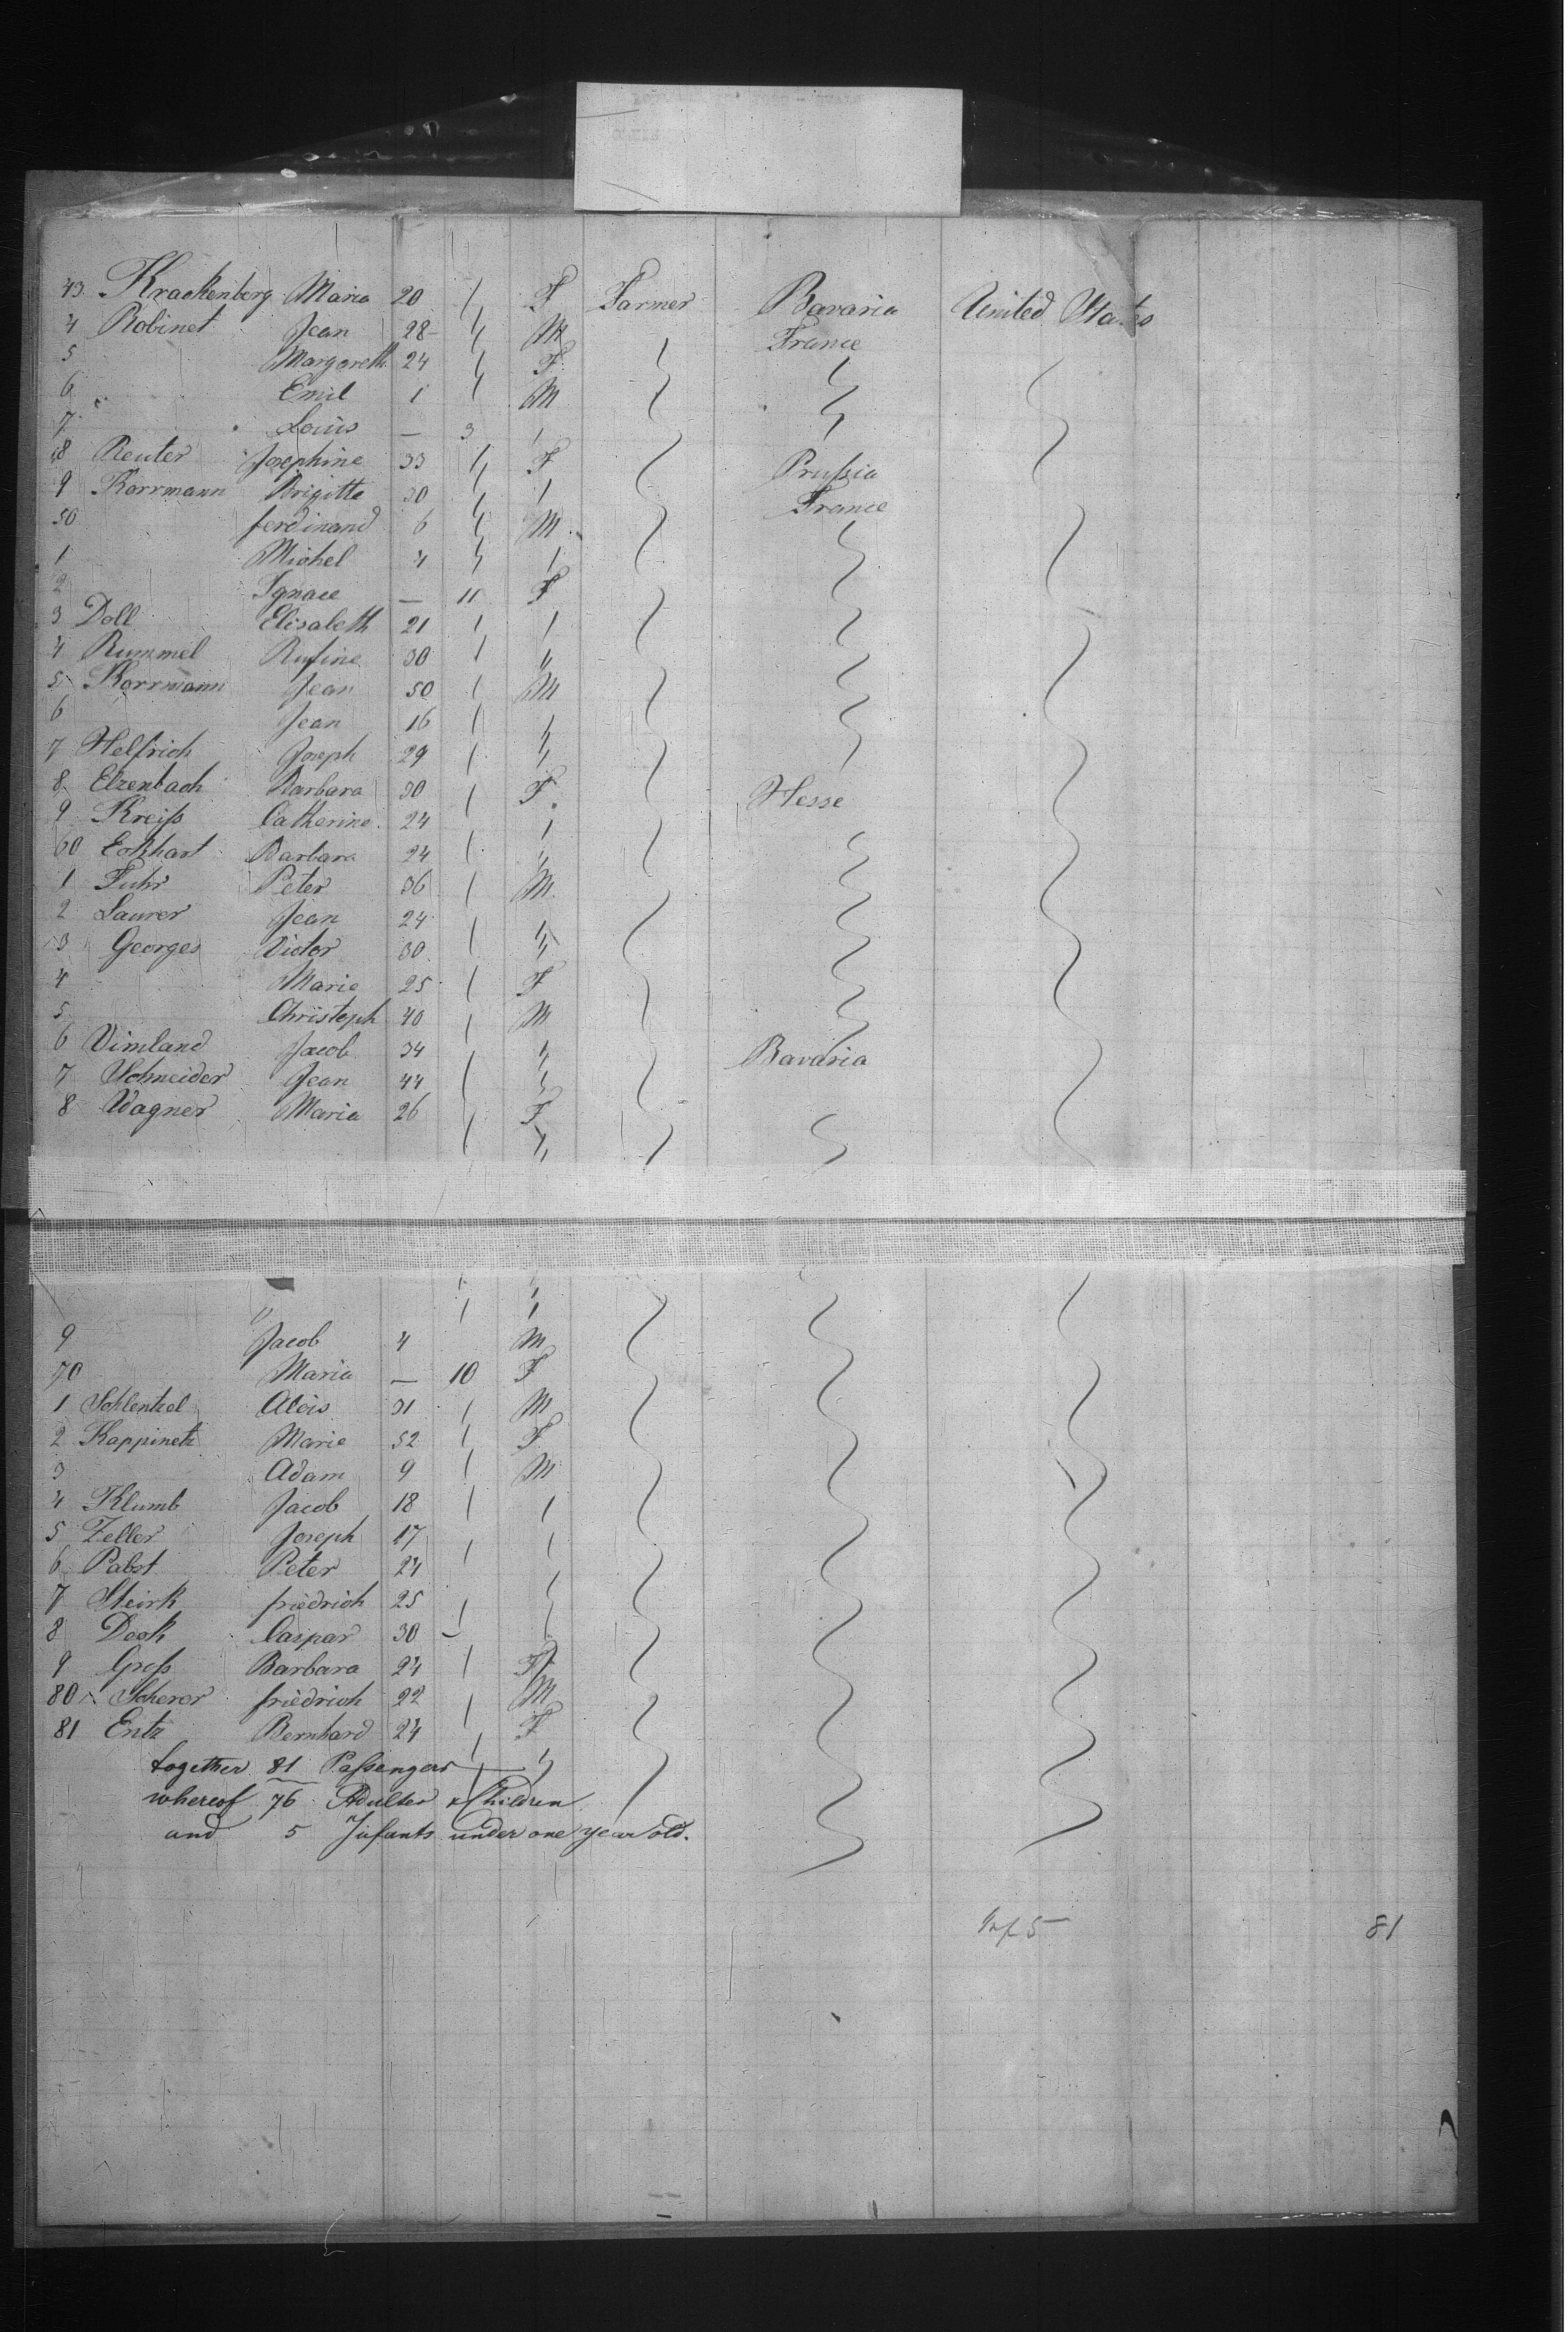 43 Krackenberg Maria 20 F Farmer Bavaria United States
4 Robinet Jean 28 M France
5 Margareth 24 F
6 Emil 1 M
7 Louis — 3
48 Reuter Josephine 33 F Prußia
9 Korrmann Brigitte 30 France
50 ferdinand 6 M
1 Michel 4
2 Ignace — 11 F
3 Doll Elisabeth 21
4 Rummel Rufine 30
5 Korrmann Jean 50 M
6 Jean 16
7 Helfrich Joseph 29
8 Elzenbach Barbara 30 F Hesse
9 Kreiß Catherine 24
60 Eckhart Barbara 24
1 Fuhr Peter 36 M
2 Laurer Jean 24
3 Georges Victor 30
4 Marie 25 F
5 Christoph 40 M
6 Vimland Jacob 34 Bavaria
7 Schneider Jean 44
8 Wagner Maria 26 F
9 Jacob 4 M
70 Maria — 10 F
1 Schlentzel Alois 31 M
2 Kappinetz Marie 52 F
3 Adam 9 M
4 Klumb Jacob 18
5 Zeller Joseph 17
6 Pabst Peter 24
7 Steirk friedrich 25
8 Dook Caspar 30
9 Groß Barbara 24 F
80 Scherer friedrich 22 M
81 Entz Bernhard 24 F
together 81 Paßengers
whereof 76 Adults & Children
and 5 Infants under one year old.
Inf 5 81